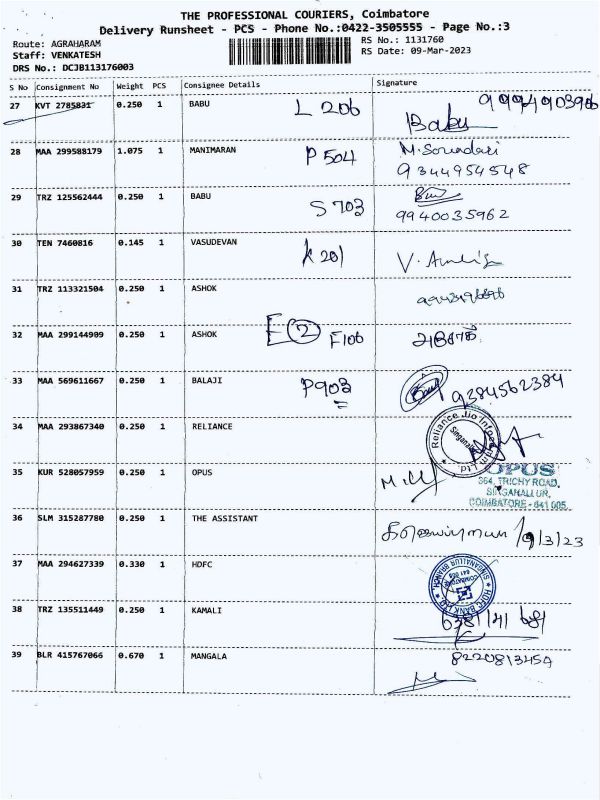 THE PROFESSIONAL COURIERS, Coimbatore
Delivery Runsheet - PCS - Phone No.:0422-3505555 - Page No.:3
Route: AGRAHARAM
Staff: VENKATESH
DRS No.: DCJB113176003
RS No.: 1131760
RS Date: 09-Mar-2023
S No Consignment No Weight PCS Consignee Details Signature
27 KVT 2785831 0.250 1 BABU L 206
Babu
28 MAA 299588179 1.075 1 MANIMARAN P 504
9344954548
29 TRZ 125562444 0.250 1 BABU S 703
9940035962
30 TEN 7460816 0.145 1 VASUDEVAN K 201
31 TRZ 113321504 0.250 1 ASHOK
32 MAA 299144909 0.250 1 ASHOK E 2 F106
33 MAA 569611667 0.250 1 BALAJI P903
9384562384
34 MAA 293867340 0.250 1 RELIANCE
35 KUR 528057959 0.250 1 OPUS
OPUS
364, TRICHY ROAD,
SINGANALLUR,
COIMBATORE - 641 005.
36 SLM 315287780 0.250 1 THE ASSISTANT 9/3/23
37 MAA 294627339 0.330 1 HDFC
HDFC BANK LTD. SINGANALLUR BRANCH
38 TRZ 135511449 0.250 1 KAMALI
6381141 681
39 BLR 415767066 0.670 1 MANGALA
8220813454